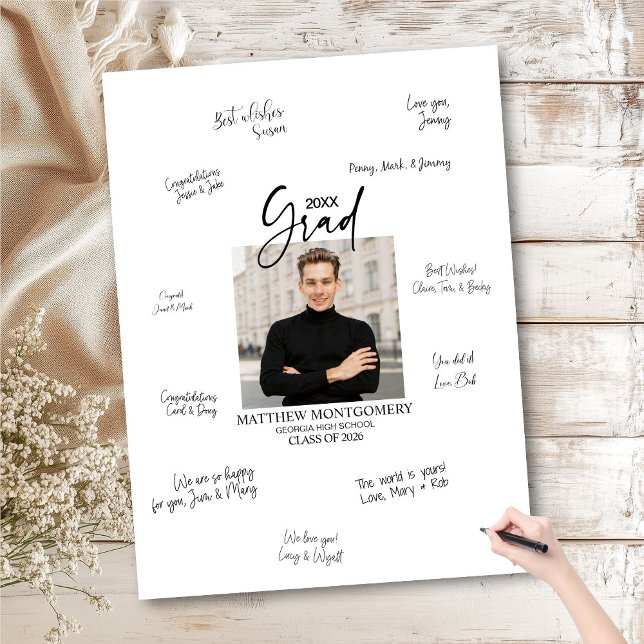 Best wishes
Susan
Love you,
Jenny
Congratulations
Jessie & Jake
Penny, Mark, & Jimmy
20XX
Grad
Best Wishes!
Claire, Tom, & Becky
Congrats!
You did it!
Love, Bob
Congratulations
Carol & Doug
MATTHEW MONTGOMERY
GEORGIA HIGH SCHOOL
CLASS OF 2026
We are so happy
for you, Jim & Mary
The world is yours!
Love, Mary & Rob
We love you!
Lucy & Wyatt